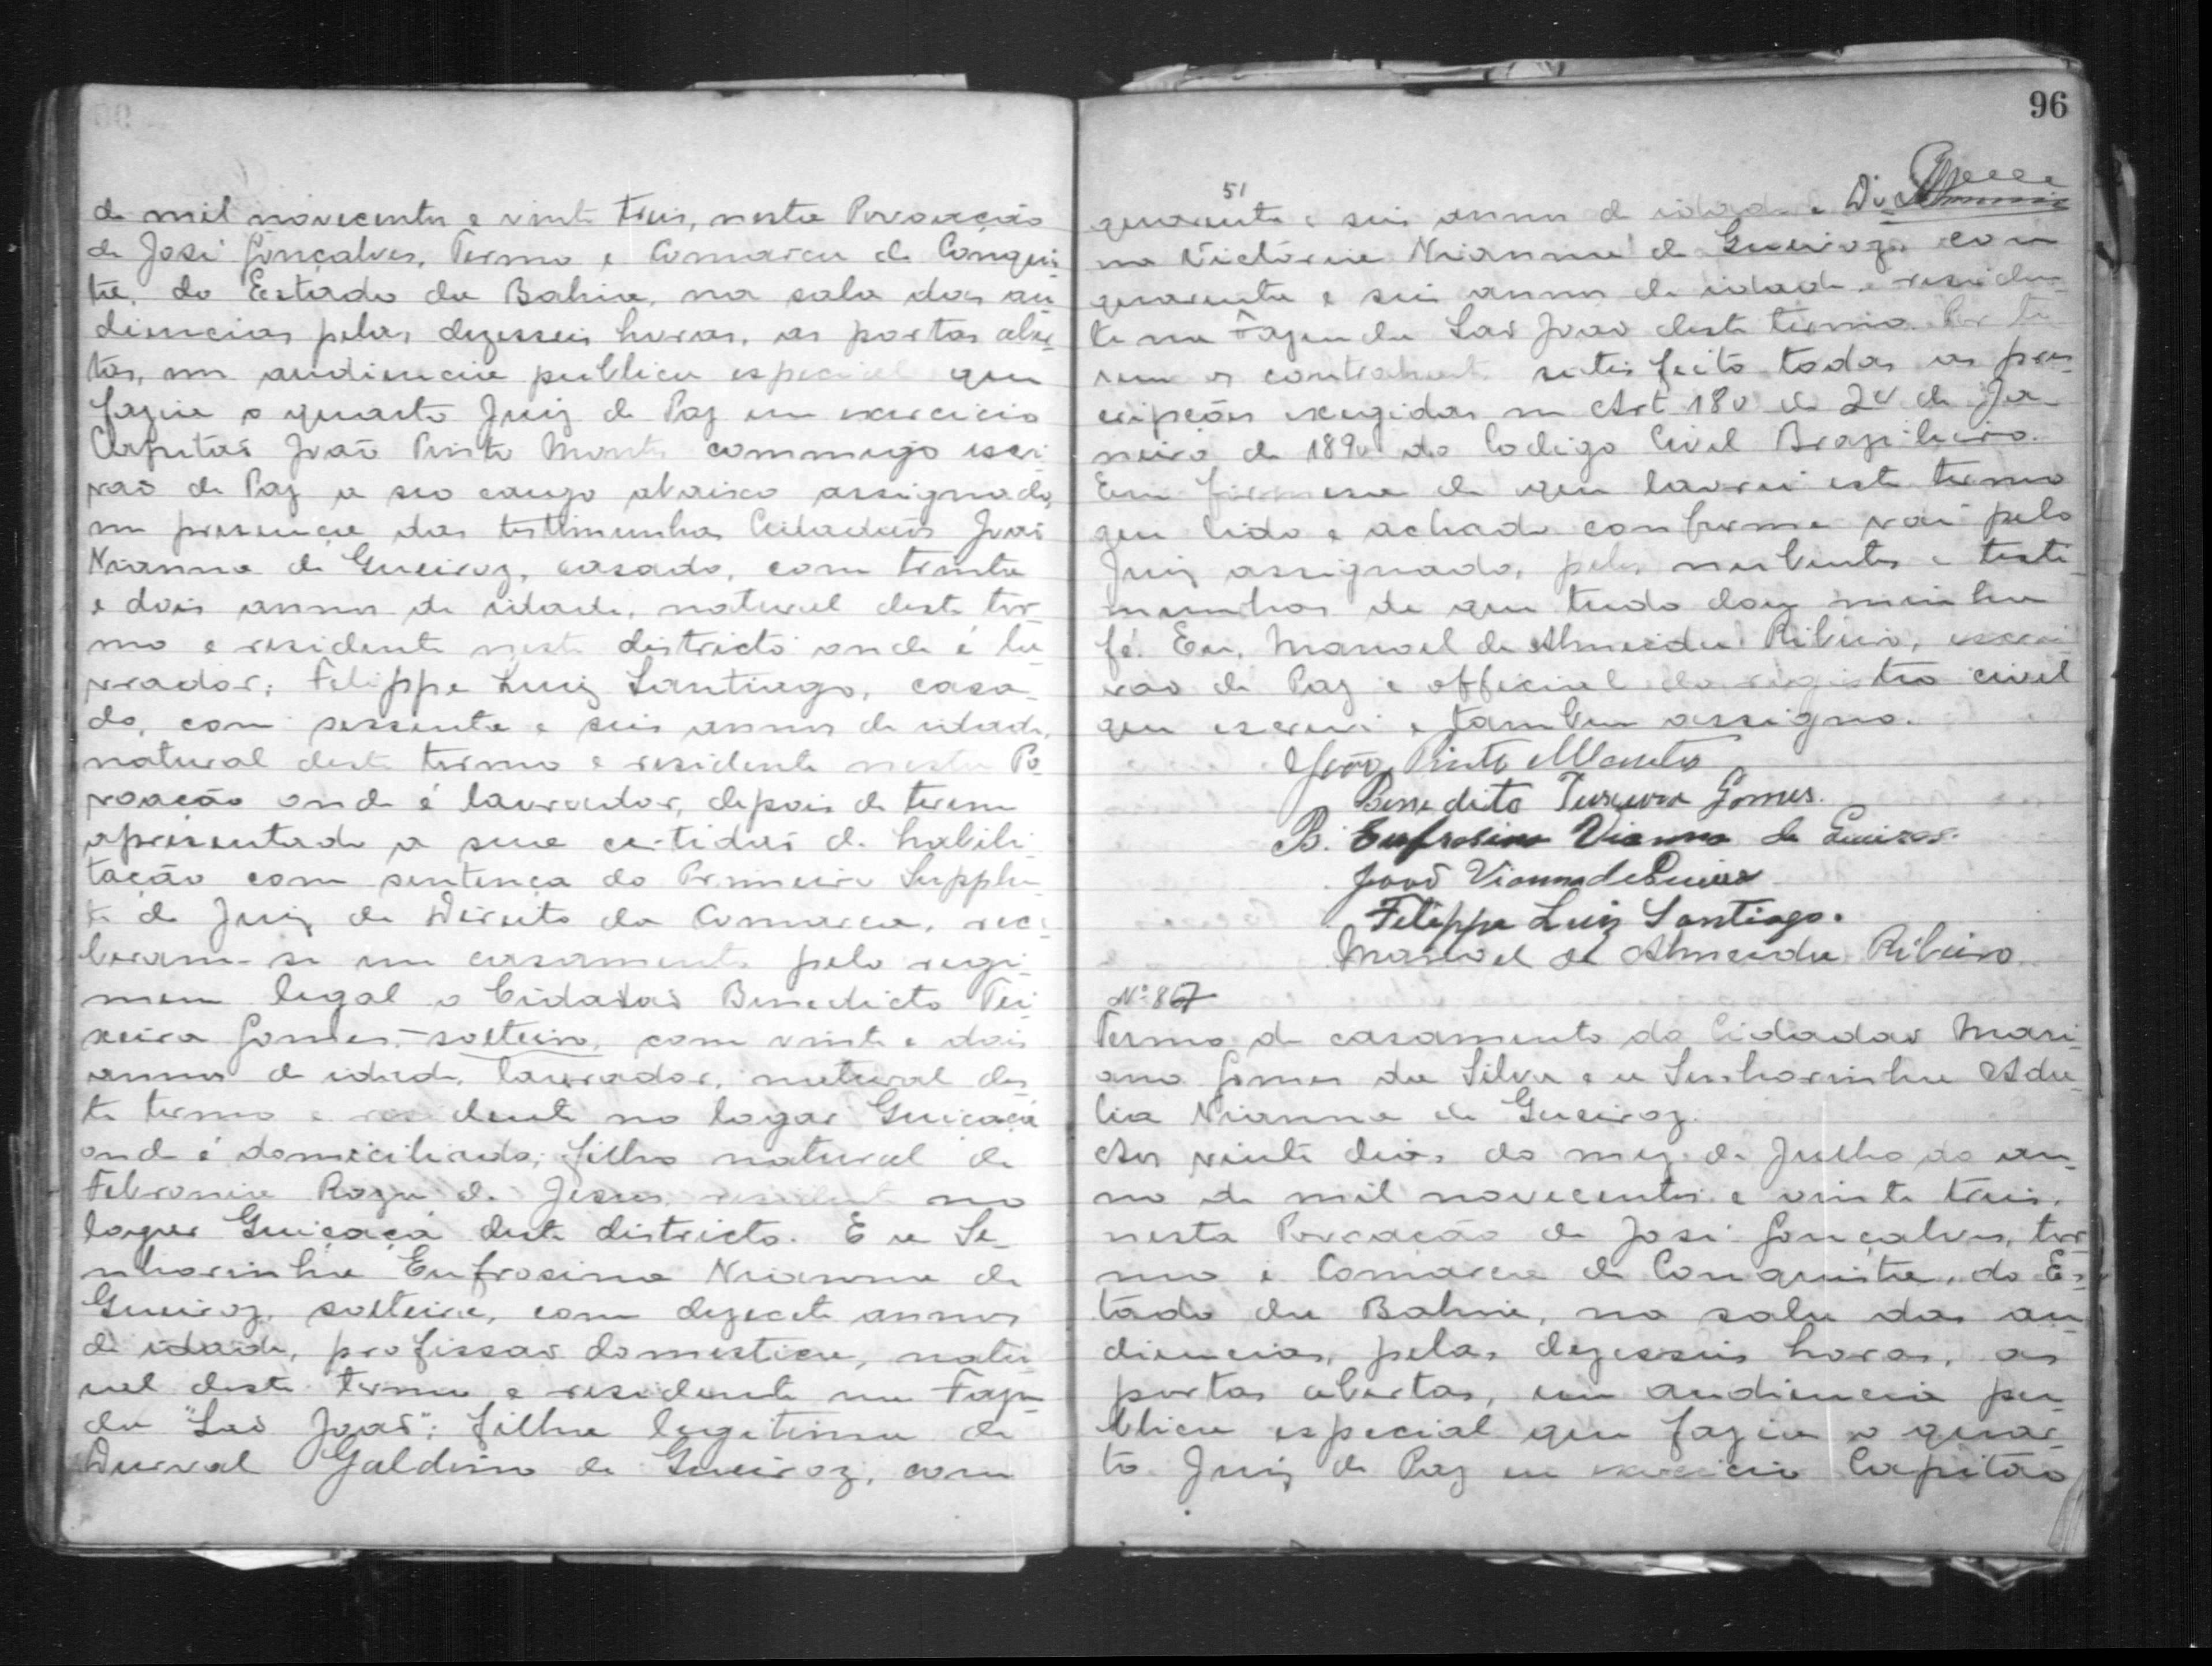 de mil novecentos e vinte treis, nesta Povoação
de José Gonçalves, Termo e Comarca de Conquis
ta, do Estado da Bahia, na sala das au
diencias pelas dezesseis horas, as portas aber
tas, em audiencia publica especial que
fazia o quarto Juiz de Paz em exercicio
Capitão João Pinto Montes commigo escri
vão de Paz a seo cargo abaixo assignado,
na presença das testimunhas Cidadãos João
Vianna de Gueiroz, casado, com trinta
e dois annos de idade, natural deste ter
mo e residente neste districto onde é la
vrador; Felippe Luiz Santiago, casa-
do, com sessenta e seis annos de idade,
natural deste termo e residente nesta Po
voação onde é lavrador, depois de terem
apresentado a sua certidão de habili
tação com sentença do Primeiro Supplen
te do Juiz de Direito da Comarca, rece
beram-se em casamento pelo regi-
mem legal o Cidadão Benedicto Tei
xeira Gomes, solteiro, com vinte e dois
annos de idade, lavrador, natural des
te termo e residente no logar Guicaçá
onde é domiciliado; filho natural de
Febronia Roza de Jesus, residente no
logar Guiçaçá deste districto. E a Se-
nhorinha Eufrosina Vianna de
Gueiroz, solteira, com dezecete annos
de idade, profissão domestica, natu
ral deste termo e residente na Fazen
da "São João"; filha legitima de
Durval Galdino de Gueiroz, com
96
51
quarenta e seis annos de idade e Do
na Victória Vianna de Gueiroz, com
quarenta e seis annos de idade e residen
te na Fazenda São João deste termo. Por te
rem os contrahentes satisfeito todas as pres
cripções exegidas no Art 180 de 24 de Ja-
neiro de 1890 do Codigo Civel Brazileiro.
Em firmesa de que lavrei este termo
que lido e achado conforme vai pelo
Juiz assignado, pelos nubentes e testi
munhas de que tudo dou minha
fé. Eu, Manoel de Almeida Ribeiro, escri
vão de Paz e official do registro civel
que escrevi e tambem assigno.
João Pinto Montes
Benedito Teixeira Gomes.
B. Eufrosina Vianna de Gueiroz.
João Vianna de Gueiroz
Felippe Luiz Santiago.
Manoel de Almeida Ribeiro
Nº 867
Termo de casamento do Cidadão Mari
ano Gomes da Silva e a Senhorinha Ade
lia Vianna de Gueiroz.
Aos vinte dias do mez de Julho do an-
no de mil novecentos e vinte treis,
nesta Povoação de José Gonçalves, ter
mo e Comarca de Conquista, do Es
tado da Bahia, na sala das au
diencias, pelas dezesseis horas, as
portas abertas, em audiencia pu
blica especial que fazia o quar-
to Juiz de Paz em exercicio Capitão